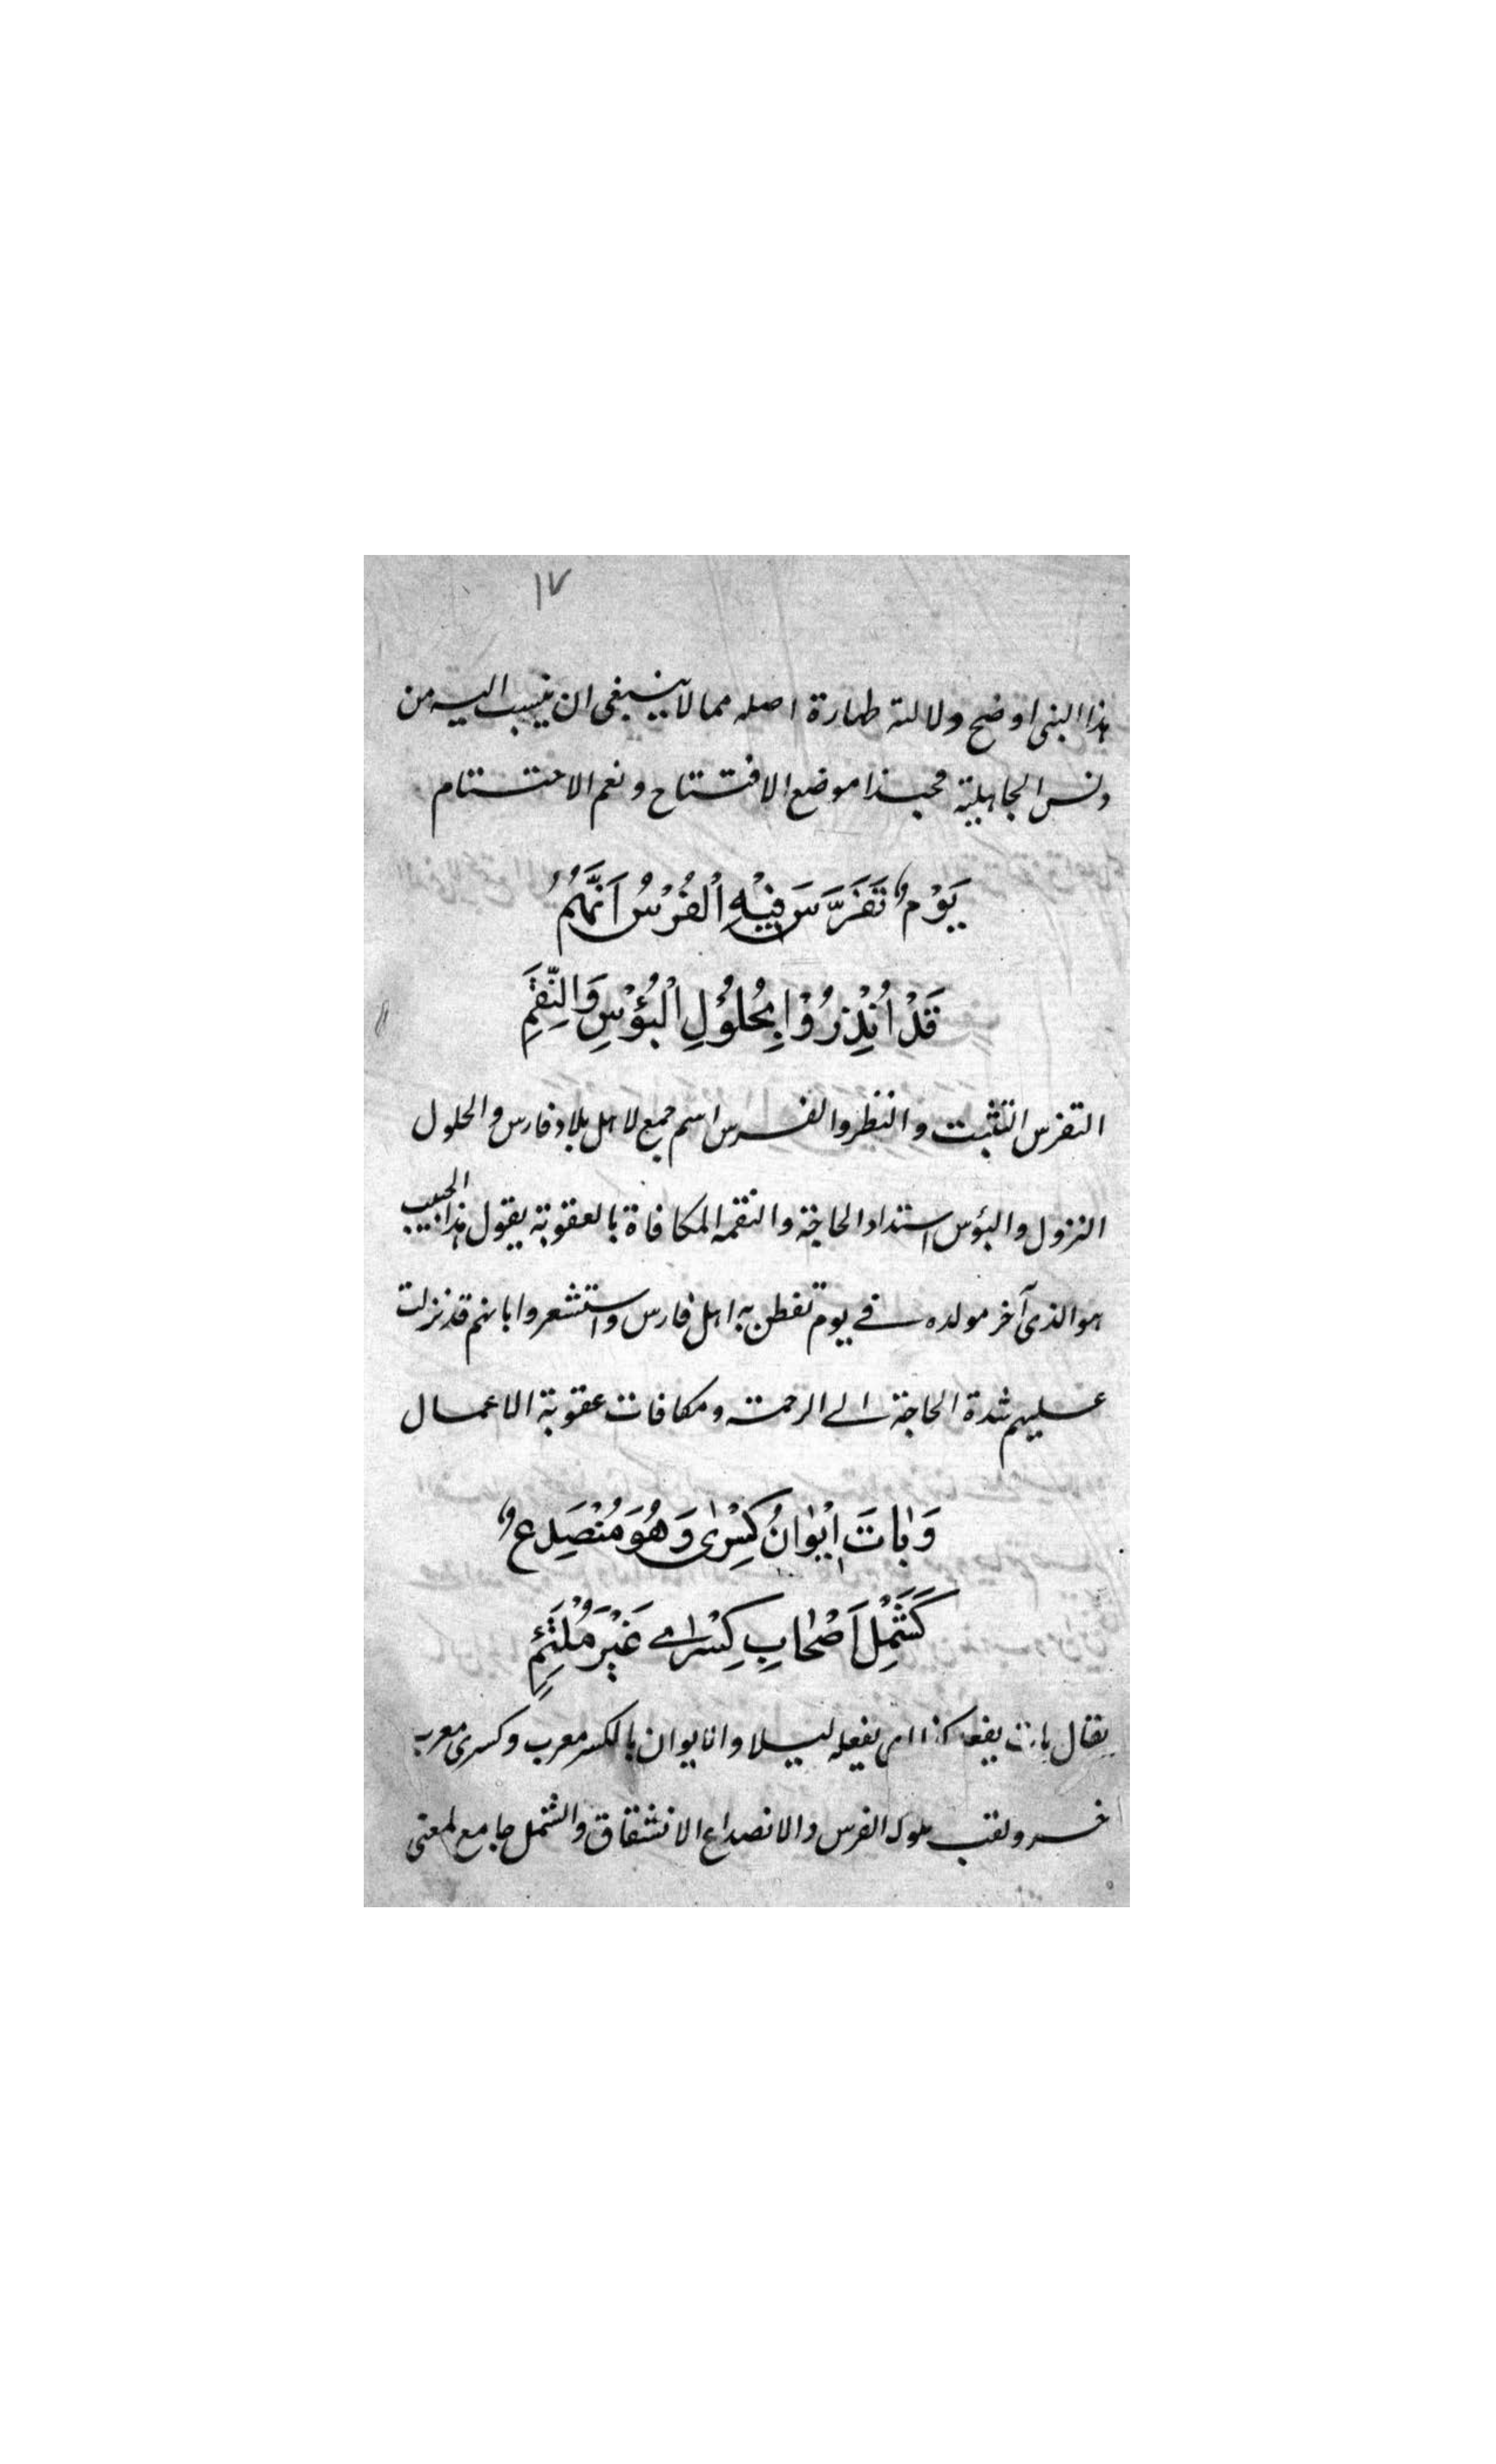 ١٧
هذا البنى اوضح ولالته طهارة اصله مما لا ينبغى ان ينسب اليه من
دنس الجاهلية فحبذا موضع الافتتاح ونعم الاختتام
يَوْمٌ تَفَرَّسَ فِيْهِ الْفُرْسُ اَنَّهُمُ
قَدْ اُنْذِرُوْا بِحُلُوْلِ الْبُؤْسِ وَالنِّقَمِ
التفرس التثبت والنظر والفرس اسم جمع لاهل بلاد فارس والحلول
النزول والبؤس اشتداد الحاجة والنقمه المكافاة بالعقوبة يقول هذا الحبيب
هو الذى آخر مولده فے يوم تفطن به اهل فارس واستشعروا بانهم قد نزلت
عليهم شدة الحاجة الے الرحمة ومكافات عقوبة الاعمال
وَبَاتَ اِيْوَانُ كِسْرٰى وَهُوَ مُنْصَدِعٌ
كَشَمْلِ اَصْحَابِ كِسْرٰے غَيْرَ مُلْتَئِمِ
يقال بات يفعل كذا اى يفعله ليلا وانايوان بالكسر معرب وكسرى معرب
خسرو لقب ملوك الفرس والانصداع الانشقاق والشمل جامع لمعنى